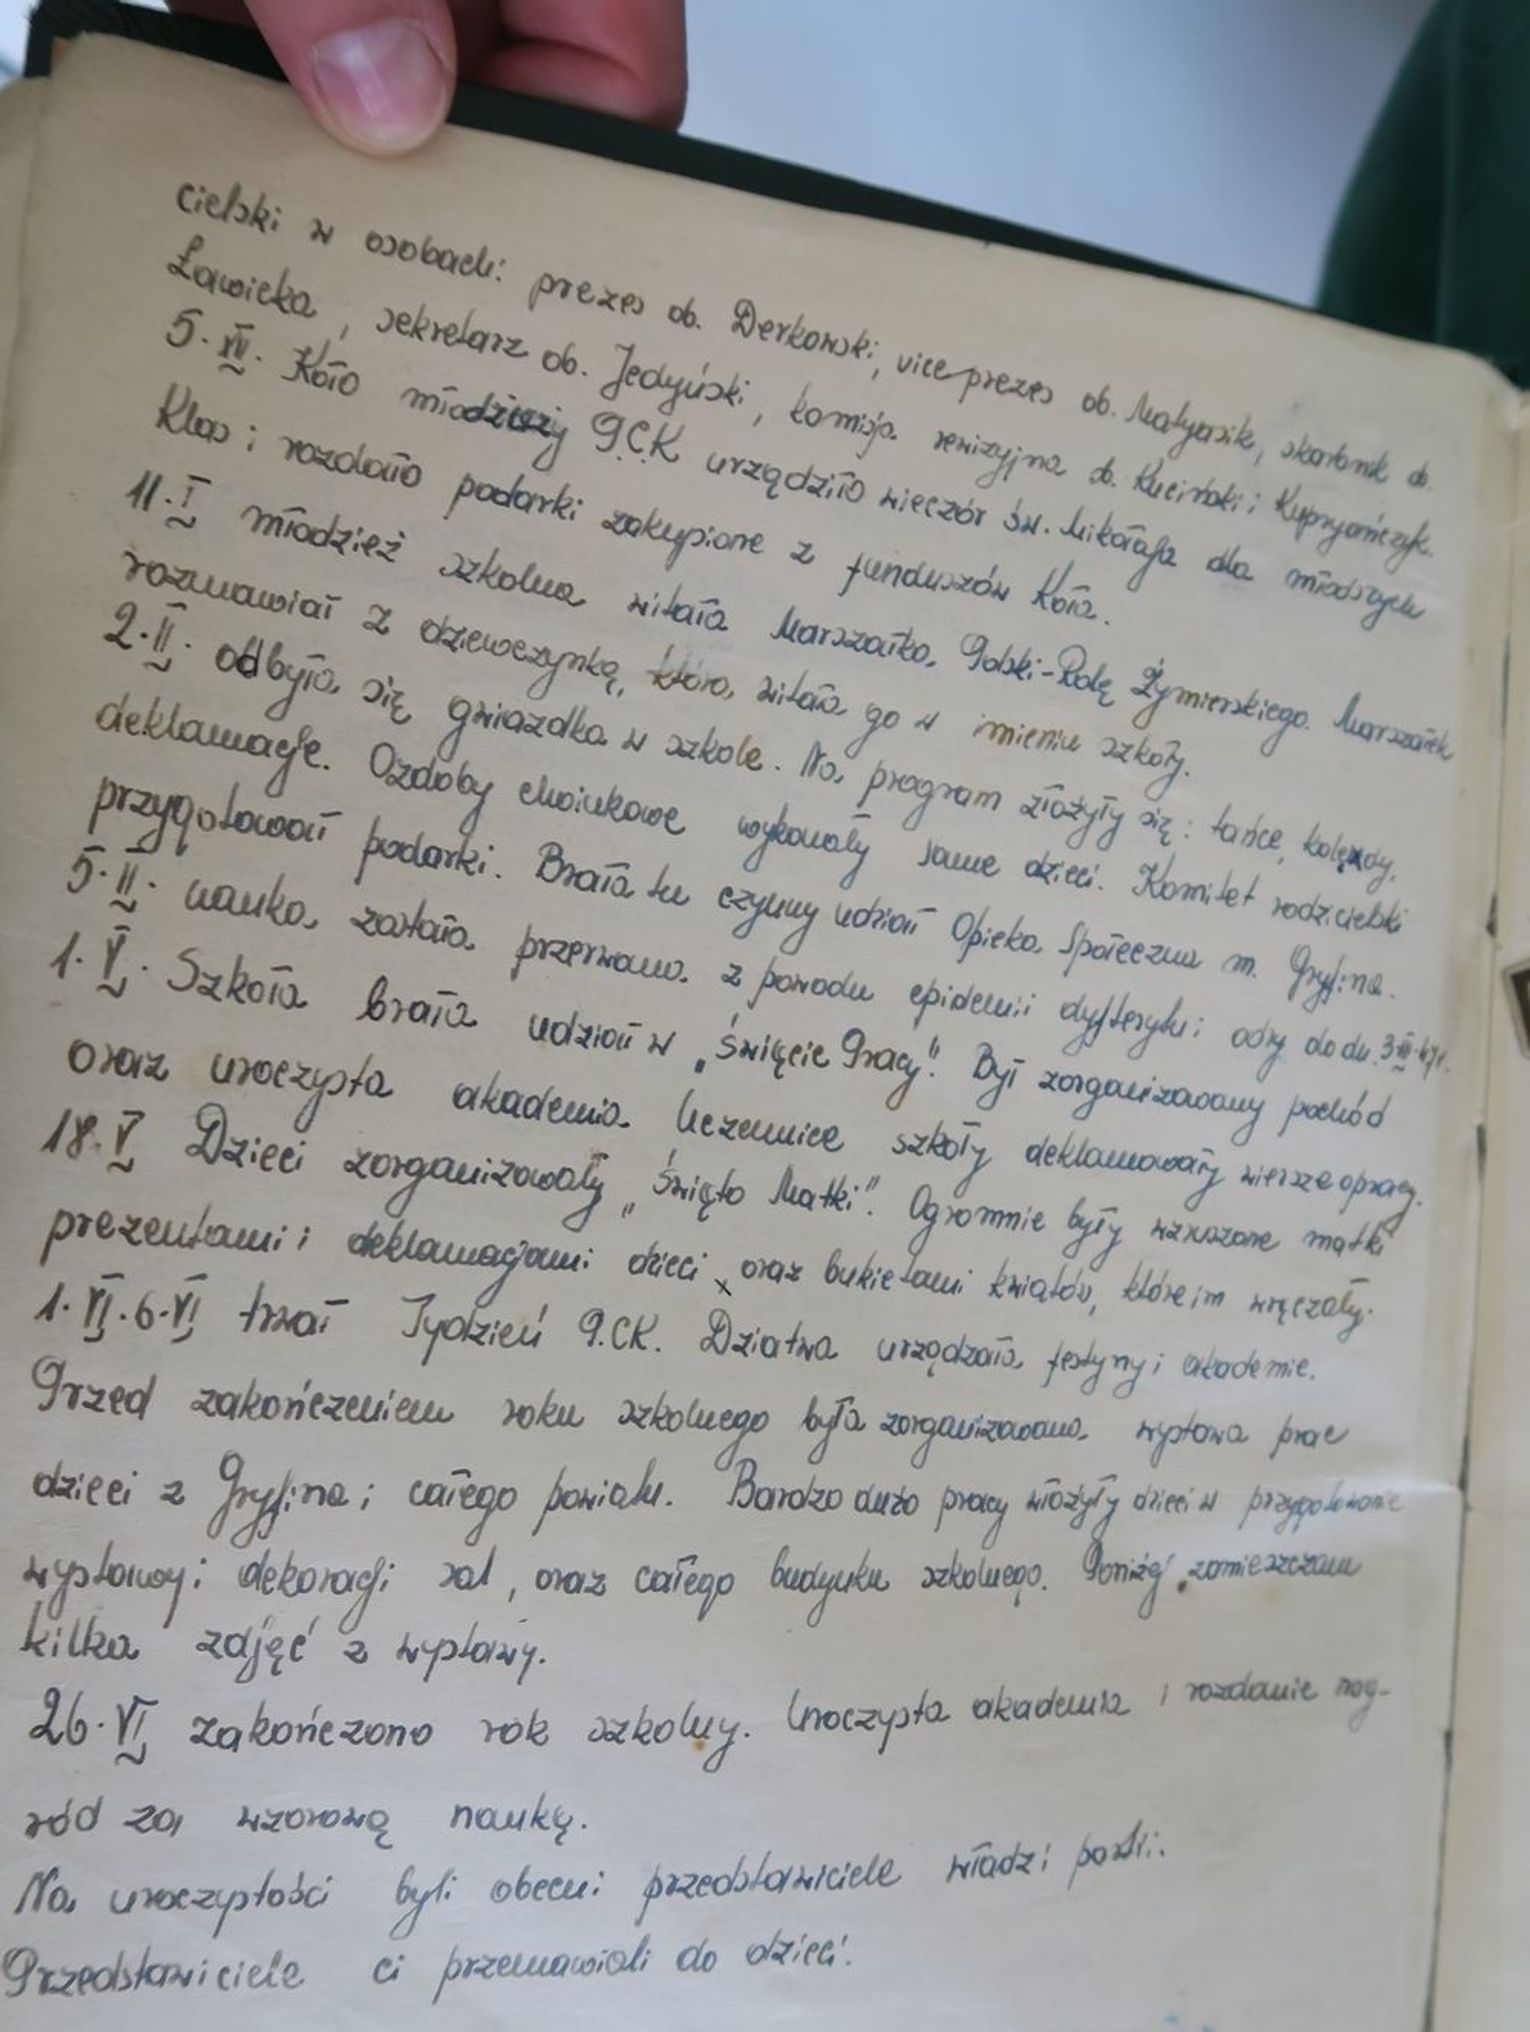 cielski w osobach: prezes ob. Derkowski, viceprezes ob. Matyasik, skarbnik ob.
Ławicka, sekretarz ob. Jedyński, komisja rewizyjna ob. Kuciński i Kupryjończyk.
5.XII. Koło młodzieży P.C.K urządziło wieczór św. Mikołaja dla młodszych
klas i rozdało podarki zakupione z funduszów Koła.
11.I młodzież szkolna witała Marszałka Polski-Rolę Żymierskiego. Marszałek
rozmawiał z dziewczynką, która witała go w imieniu szkoły.
2.II. odbyła się gwiazdka w szkole. Na program złożyły się: tańce, kolędy,
deklamacje. Ozdoby choinkowe wykonały same dzieci. Komitet rodzicielski
przygotował podarki. Brała tu czynny udział Opieka Społeczna m. Gryfina.
5.II. nauka została przerwana z powodu epidemii dyfterytu i odry do dn. 3.III.47r.
1.V. Szkoła brała udział w „Święcie Pracy". Był zorganizowany pochód
oraz uroczysta akademia. Uczennice szkoły deklamowały wiersze o pracy.
18.V Dzieci zorganizowały „Święto Matki". Ogromnie były wzruszone matki
prezentami i deklamacjami dzieci, oraz bukietami kwiatów, które im wręczały.
1.VI.6.VI trwał Tydzień P.CK. Dziatwa urządzała festyny i akademie.
Przed zakończeniem roku szkolnego była zorganizowana wystawa prac
dzieci z Gryfina i całego powiatu. Bardzo dużo pracy włożyły dzieci w przygotowanie
wystawy i dekoracji sal, oraz całego budynku szkolnego. Poniżej zamieszczam
kilka zdjęć z wystawy.
26.VI zakończono rok szkolny. Uroczysta akademia i rozdanie nag-
ród za wzorową naukę.
Na uroczystości byli obecni przedstawiciele władz i partii.
Przedstawiciele ci przemawiali do dzieci.